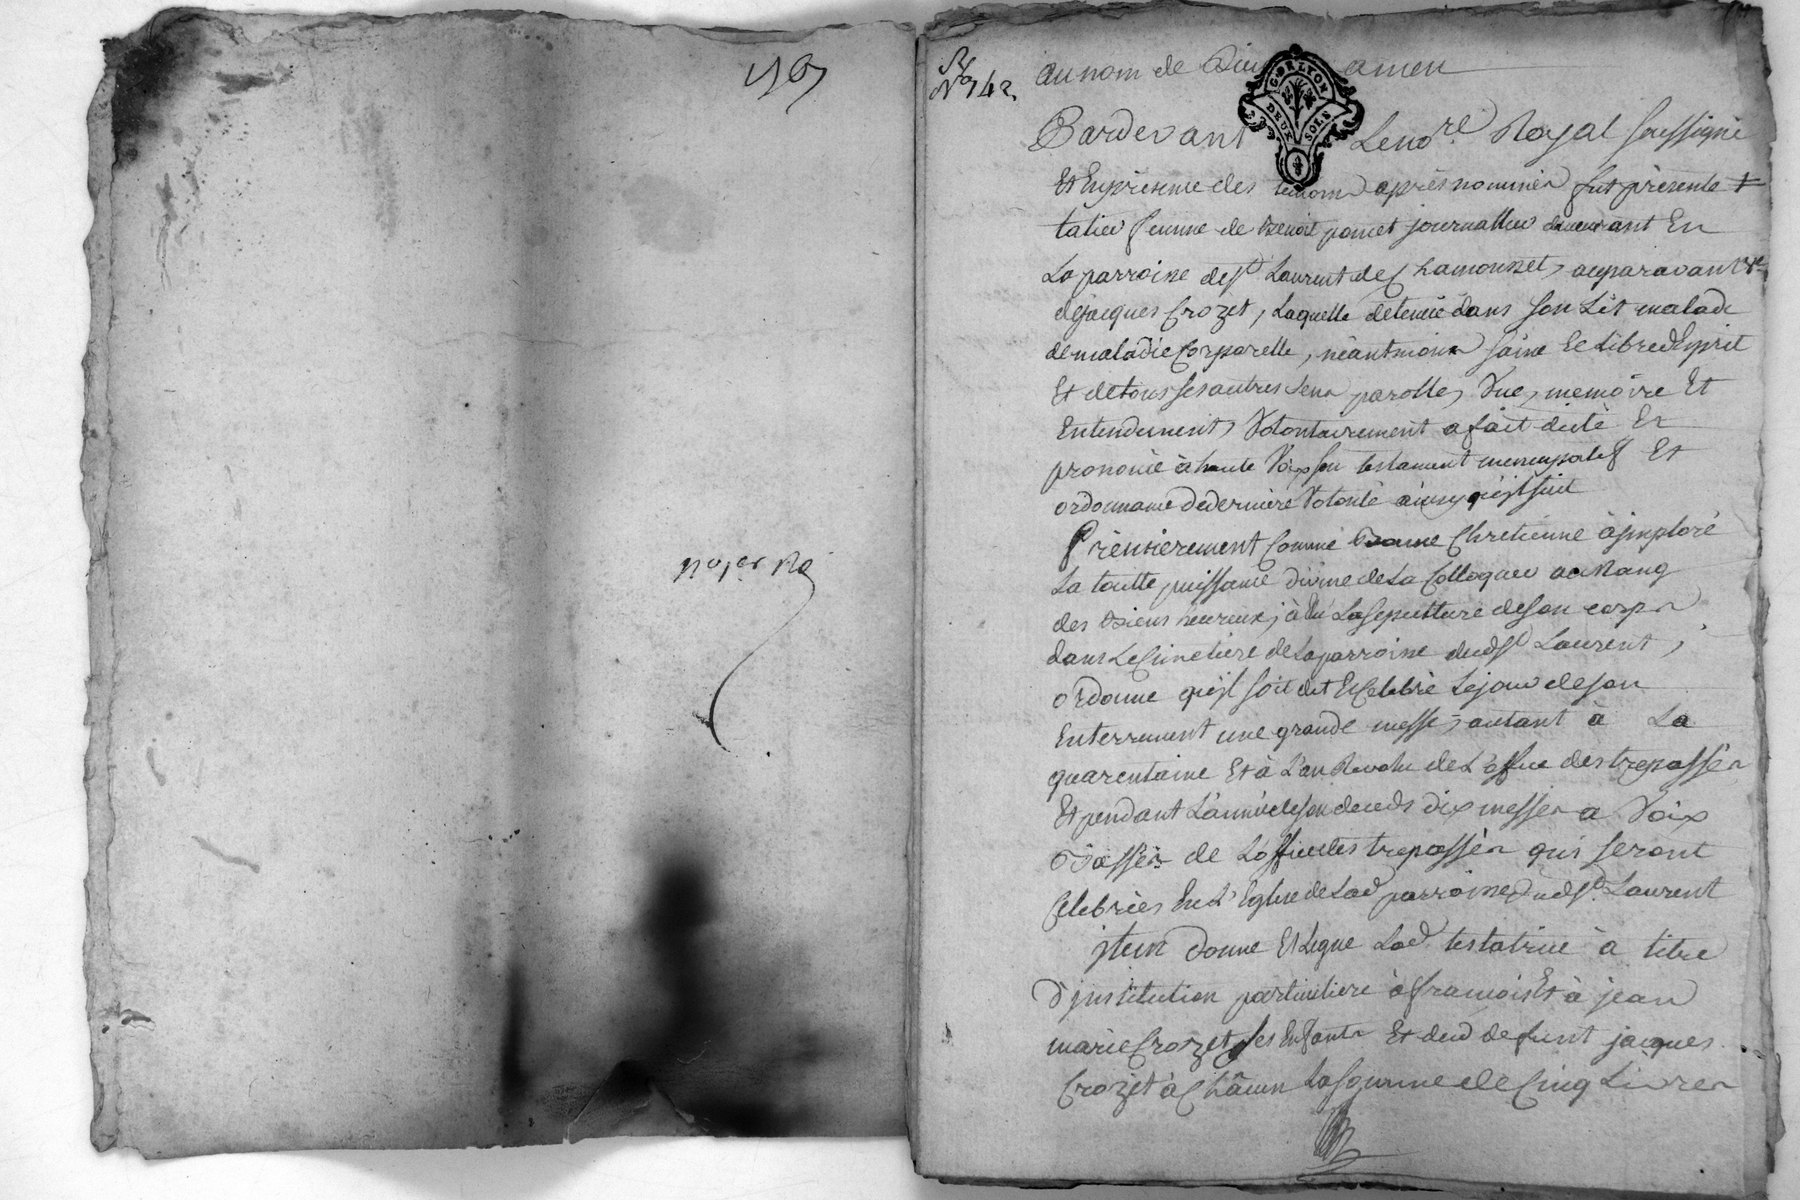 au nom de Dieu amen
G. DE LYON
DEUX SOLS
Pardevant Le no.re Royal soussigné
Et En présence des témoins après nommés fut présente
femme de Benoit pomet journallier demeurant En
La parroisse de st Laurent de Chamousset, auparavant
de jacques Crozet, Laquelle detenüe dans son Lit malade
de maladie Corporelle, néantmoins saine Et Libre d'Esprit
Et de tous ses autres sens parolle, Vüe, memoire Et
Entendement, Volontairement a fait dicté Et
prononcé à haute Voix son testament nuncupatif Et
ordonnance de derniere Volonté ainsy qu'jl suit
Premierement Comme Bonne Chretienne à jmploré
La toutte puissance divine de La Colloquer au Rang
des Biens heureux, à élu La Sepulture de son corps
dans Le Cimetiere de La parroisse dud. st Laurent,
ordonne qu'jl soit dit Et Celebré Le jour de son
Enterrement une grande messe, autant à La
quarentaine Et à L'an Revolu de L'office des trepassés
Et pendant L'année de son deceds dix messes a Voix
Basses de L'office des trepassés qui seront
Celebrées En L'Eglise de Lad. parroisse dud. st Laurent
jtem donne Et Legue Lad. testatrice à titre
d'jnstitution particuliere à francois Et à jean
marie Crozet ses Enfants Et dud. defunt jacques
Crozet à Châcun La Somme de Cinq Livres